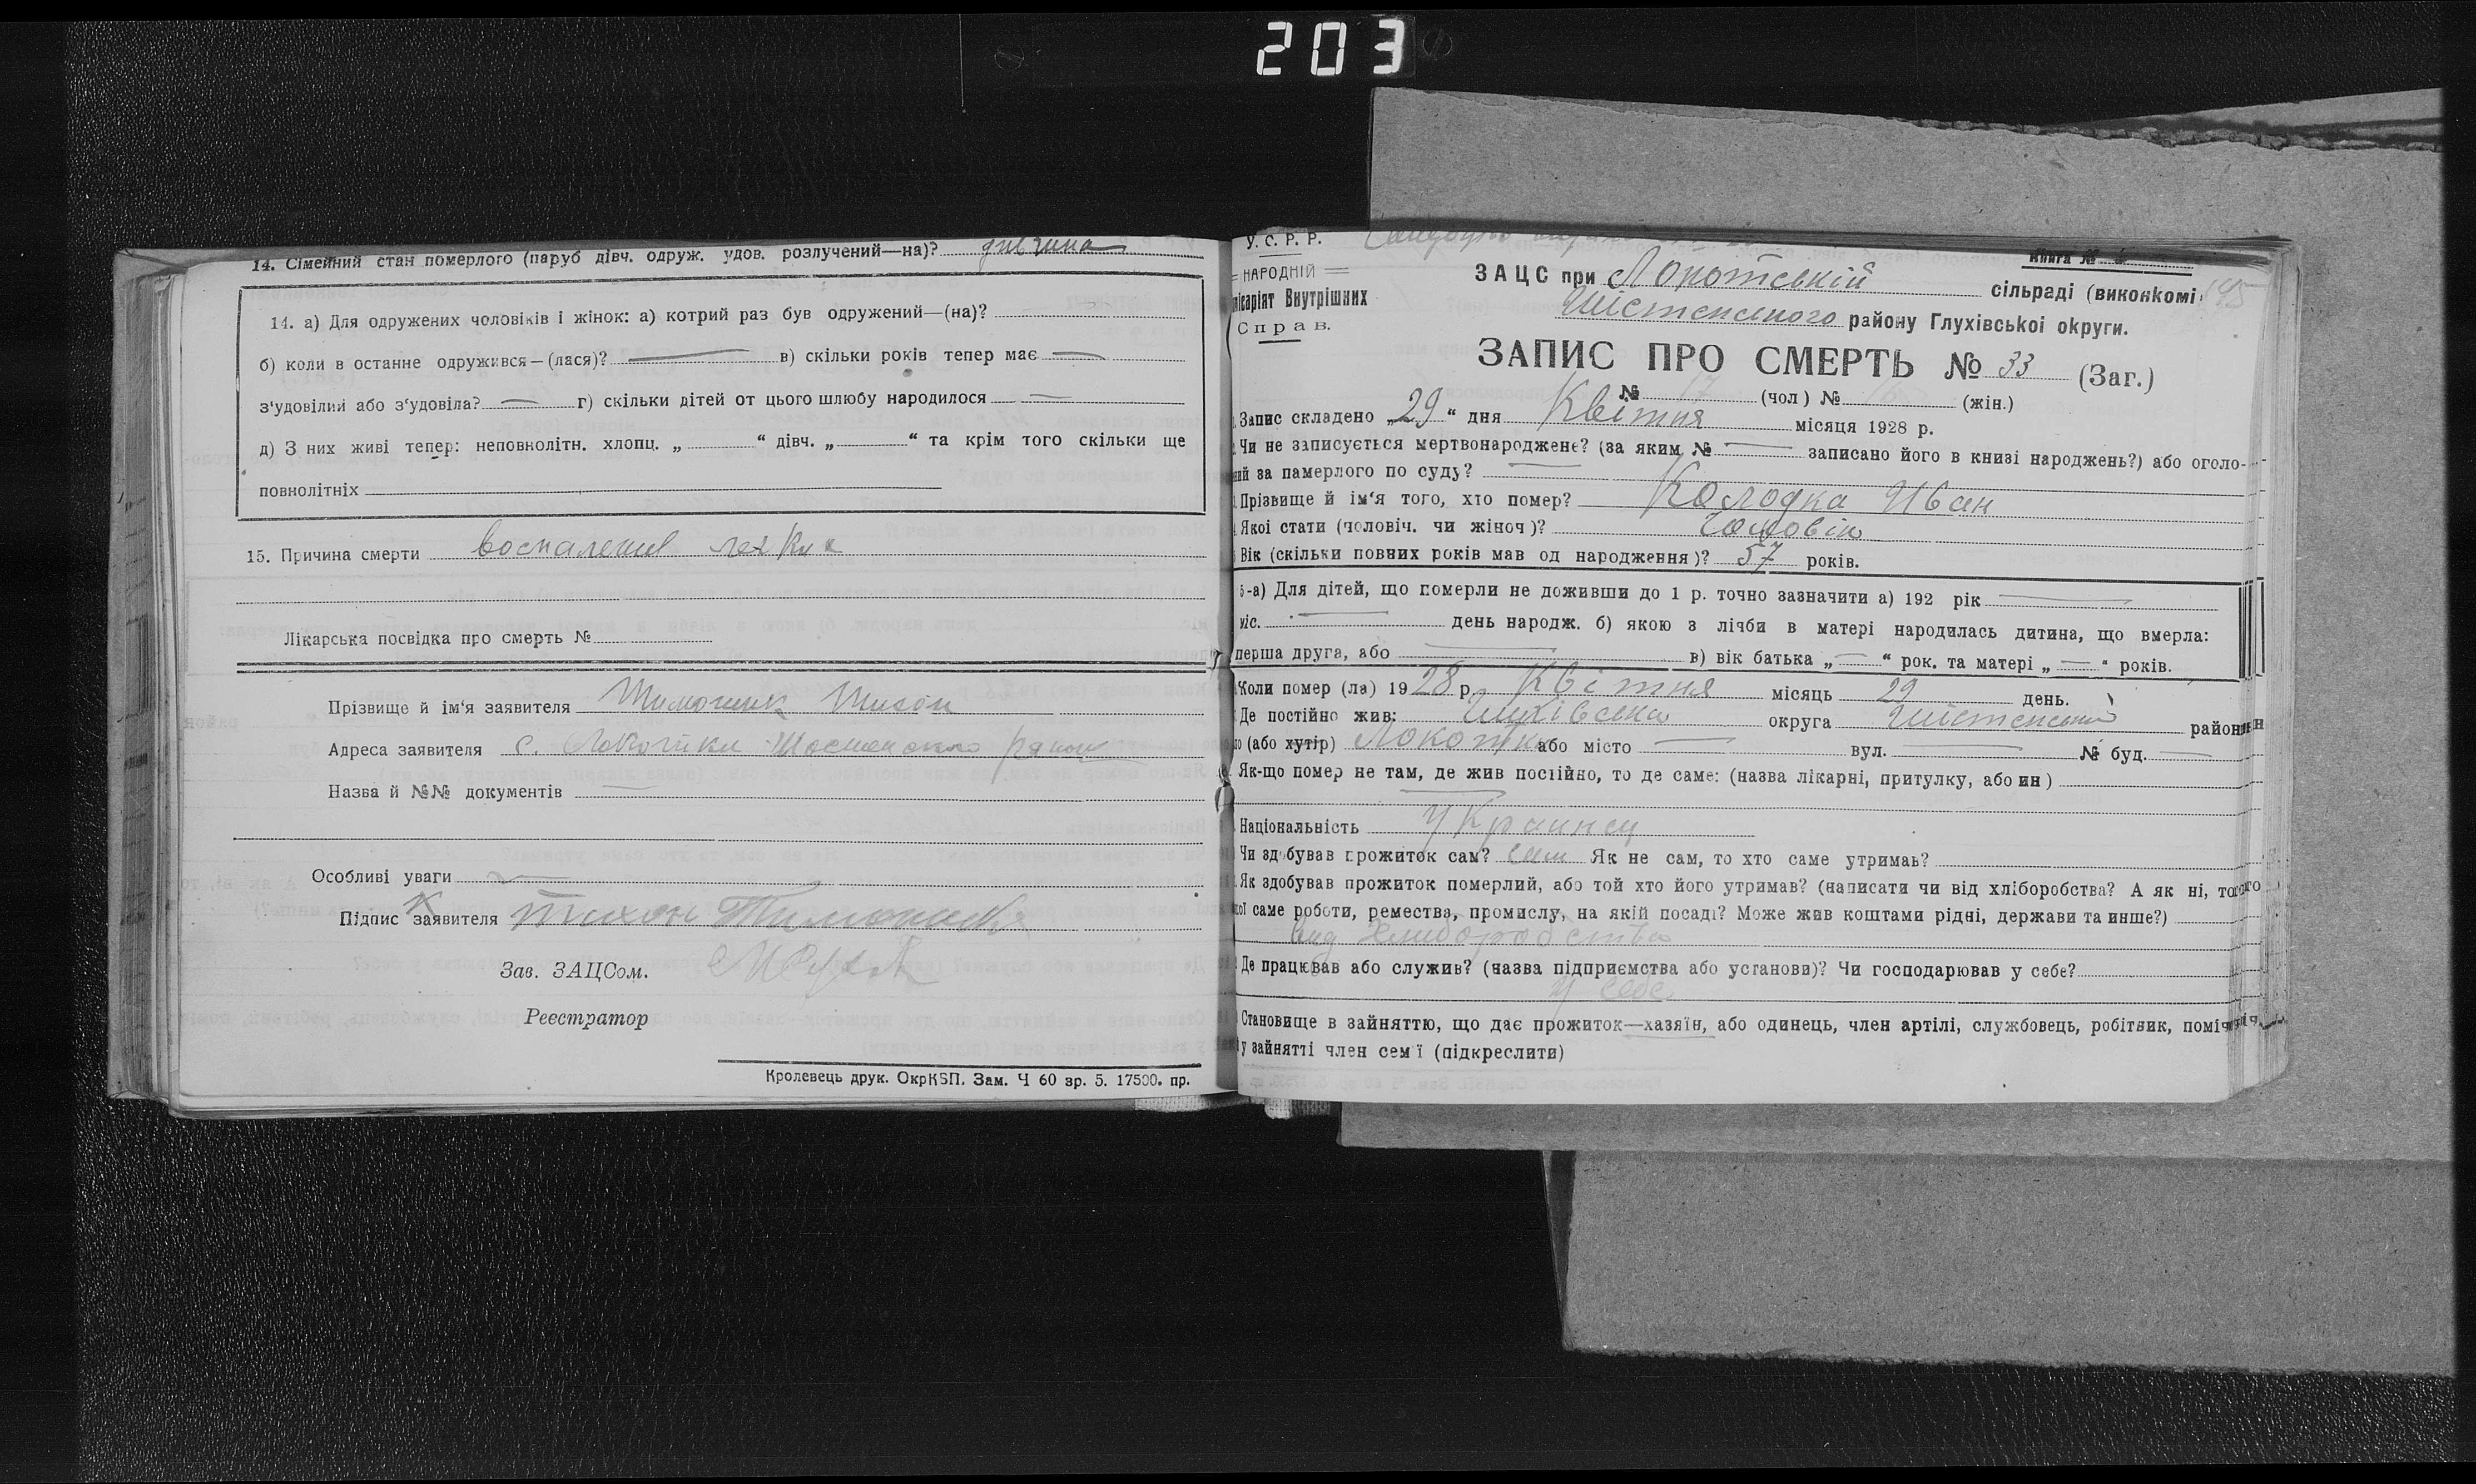 203
14. Сімейний стан померлого (паруб дівч. одруж. удов. розлучений—на)? дивчина
14. а) Для одружених чоловіків і жінок: а) котрий раз був одружений—(на)?
б) коли в останне одружився—(лася)? — в) скільки років тепер має —
з'удовілий або з'удовіла? — г) скільки дітей от цього шлюбу народилося —
д) З них живі тепер: неповнолітн. хлопц. „ “ дівч. „ “ та крім того скільки ще
повнолітніх
15. Причина смерти воспаление легких
Лікарська посвідка про смерть №
Прізвище й ім'я заявителя Тимошик Тихон
Адреса заявителя с. Локотки Шостенского району
Назва й №№ документів —
Особливі уваги —
Підпис заявителя Тихон Тимошик
Зав. ЗАЦСом.
Реестратор
Кролевець друк. ОкрКБП. Зам. Ч 60 зр. 5. 17500. пр.
У. С. Р. Р.
Книга №
НАРОДНІЙ
місаріят Внутрішних
Справ.
ЗАЦС при Локотській сільраді (виконкомі)
Шістенського району Глухівської округи.
ЗАПИС ПРО СМЕРТЬ № 33 (Заг.)
№ 17 (чол) № (жін.)
Запис складено „29“ дня Квітня місяця 1928 р.
Чи не записується мертвонароджене? (за яким № — записано його в книзі народжень?) або оголо-
ний за памерлого по суду? —
Прізвище й ім'я того, хто помер? Колодка Иван
Якої стати (чоловіч. чи жіноч)? Чоловік
Вік (скільки повних років мав од народження)? 57 років.
5-а) Для дітей, що померли не доживши до 1 р. точно зазначити а) 192 рік —
міс. — день народж. б) якою з лічби в матері народилась дитина, що вмерла:
перша друга, або — в) вік батька „—“ рок. та матері „—“ років.
Коли помер (ла) 1928 р. Квітня місяць 29 день.
Де постійно жив: Глухівська округа Шістенський район
(або хутір) Локотки або місто — вул. — № буд. —
Як-що помер не там, де жив постійно, то де саме: (назва лікарні, притулку, або ин)
—
Національність Украинец
Чи здобував прожиток сам? сам Як не сам, то хто саме утримав?
Як здобував прожиток померлий, або той хто його утримав? (написати чи від хліборобства? А як ні, то
саме роботи, ремества, промислу, на якій посаді? Може жив коштами рідні, держави та инше?)
вид хлиборобства
Де працював або служив? (назва підприємства або установи)? Чи господарював у себе?
у себе
Становище в зайняттю, що дає прожиток—хазяїн, або одинець, член артілі, службовець, робітник, поміч
у зайнятті член сем'ї (підкреслити)